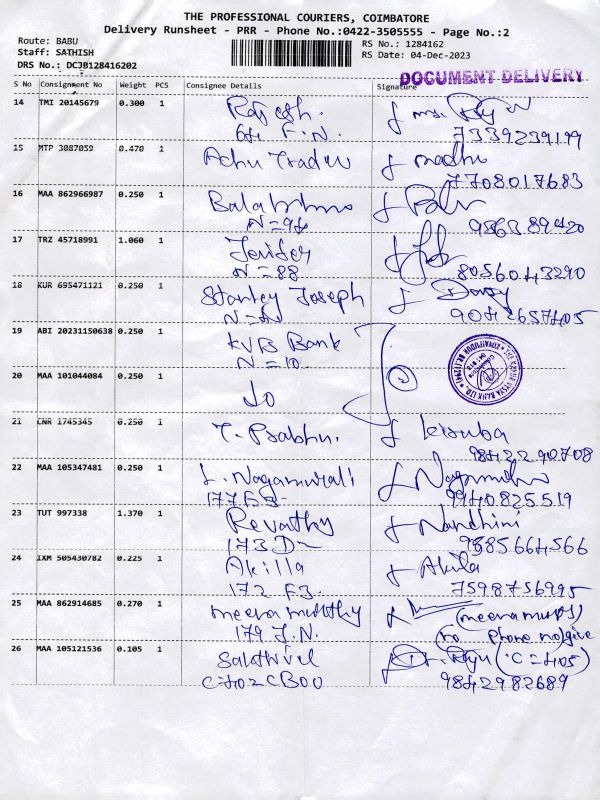 THE PROFESSIONAL COURIERS, COIMBATORE
Delivery Runsheet - PRR - Phone No.:0422-3505555 - Page No.:2
Route: BABU
Staff: SATHISH
DRS No.: DCJB128416202
RS No.: 1284162
RS Date: 04-Dec-2023
DOCUMENT DELIVERY
S No Consignment No Weight PCS Consignee Details Signature
14 TMI 20145679 0.300 1 Rajesh.
7339239199
15 MTP 3087059 0.470 1 Achu Traders madhu
7708017683
16 MAA 862966987 0.250 1
N=94
17 TRZ 45718991 1.060 1 Jenifer
N=88 8056043290
18 KUR 695471121 0.250 1 Stanley Joseph
9042657405
19 ABI 20231150638 0.250 1 KVB Bank
N=10.
20 MAA 101044084 0.250 1 do
21 CNR 1745345 0.250 1 T. Prabhu. kiruba
9842290708
22 MAA 105347481 0.250 1 L. Nagamurali
177 F3 9940825519
23 TUT 997338 1.370 1 Revathy Nandhini
173 D2 9885664566
24 IXM 505430782 0.225 1 Akilla Akila
172 F3. 7598756995
25 MAA 862914685 0.270 1 meenamurthy
179 J.N. no phone no give
26 MAA 105121536 0.105 1 Sakthivel (C=405)
9842982689